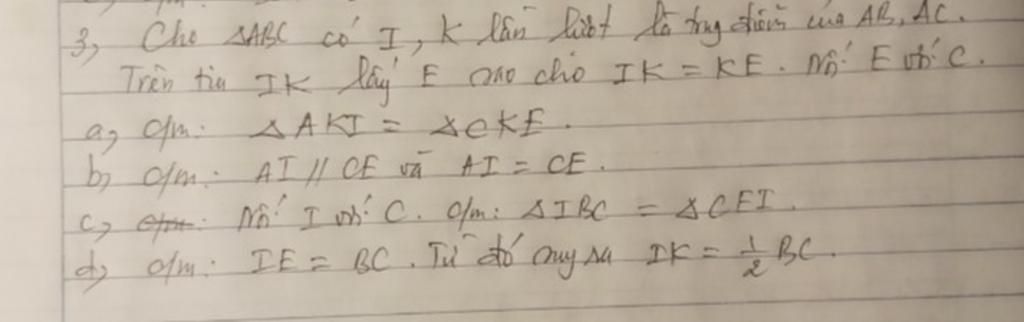 3, Cho ΔABC có I, K lần lượt là trung điểm của AB, AC.
Trên tia IK lấy E sao cho IK = KE. Nối E với C.
a, c/m: ΔAKI = ΔCKE.
b, c/m: AI // CE và AI = CE.
c, c/m: Nối I với C. c/m: ΔIBC = ΔCEI.
d, c/m: IE = BC. Từ đó suy ra IK = 1/2 BC.